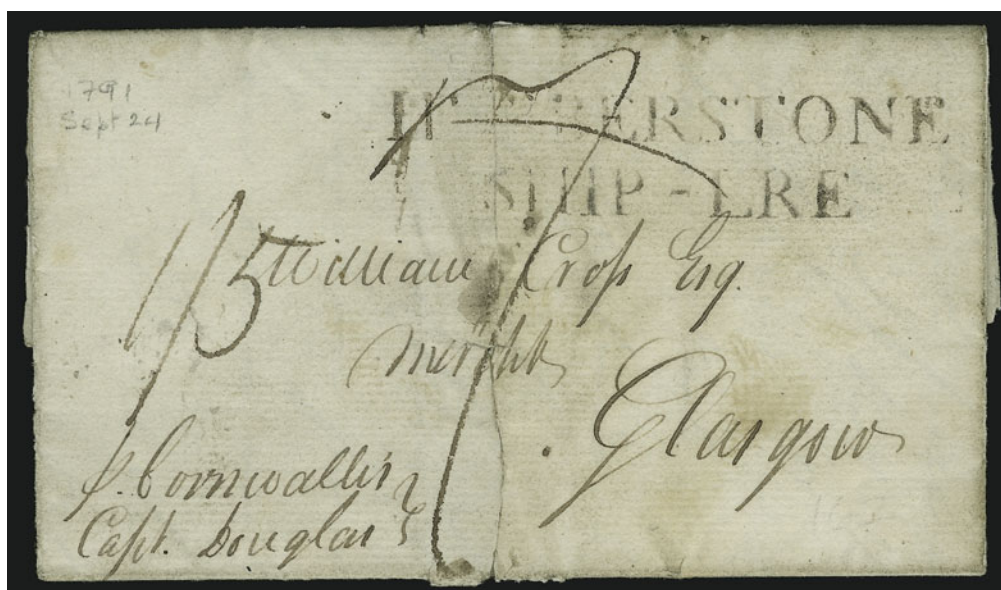 1791
Sept 24
HUBBERSTONE
SHIP-LRE
1/5
William Croſs Esq.
Mercht
Glasgow
p. Cornwallis
Capt. Douglas